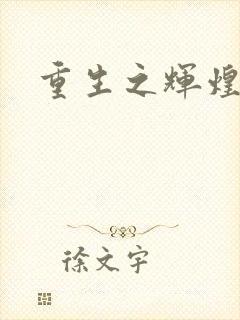 重生之辉煌
徐文宇